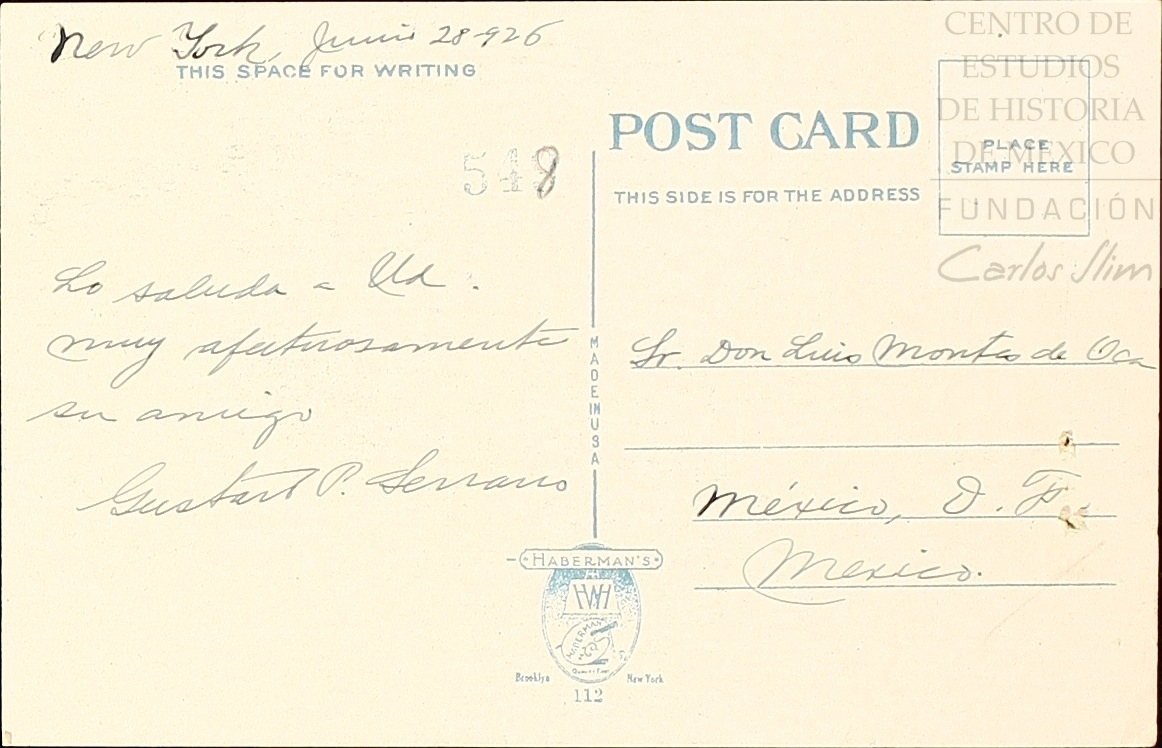 New York, Junio 28-926
THIS SPACE FOR WRITING
548
Lo saluda a Ud.
muy afectuosamente
su amigo
Gustavo P. Serrano
POST CARD
THIS SIDE IS FOR THE ADDRESS
PLACE
STAMP HERE
CENTRO DE
ESTUDIOS
DE HISTORIA
DE MEXICO
FUNDACIÓN
Carlos Slim
MADE IN USA
Sr. Don Luis Montes de Oca
México, D. F.
Mexico.
HABERMAN'S
HABERMAN'S
Brooklyn New York
112